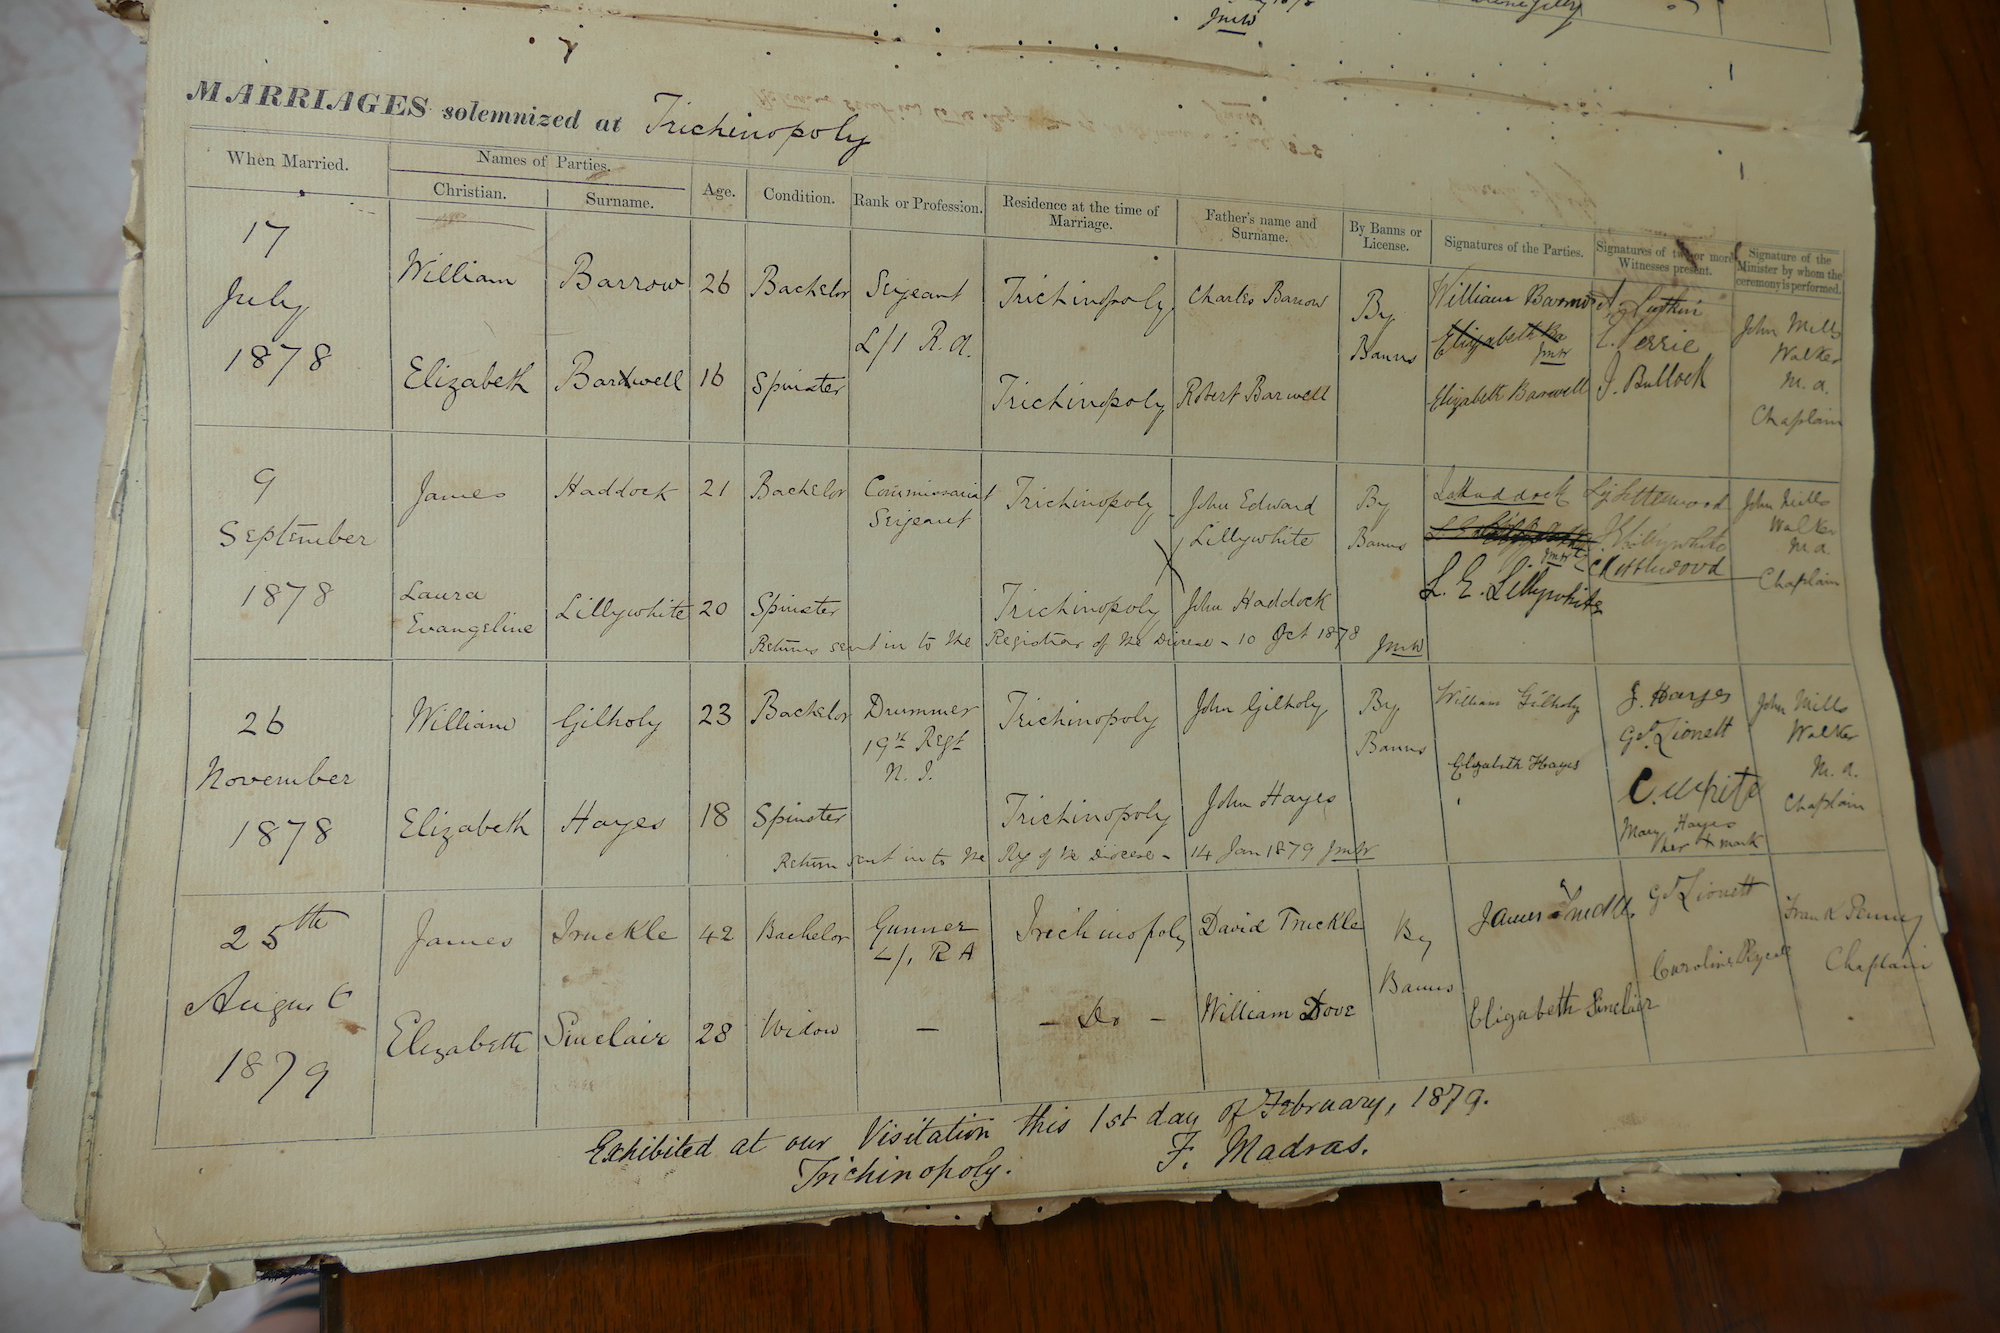 JMW
MARRIAGES solemnized at Trichinopoly
When Married. Names of Parties. Age. Condition. Rank or Profession. Residence at the time of Marriage. Father's name and Surname. By Banns or License. Signatures of the Parties. Signatures of two or more Witnesses present. Signature of the Minister by whom the ceremony is performed.
Christian. Surname.
17 July 1878
William Barrow 26 Bachelor Serjeant L/1 R.A. Trichinopoly Charles Barrow By Banns William Barrow
Elizabeth Ba JMW
Elizabeth Barwell 16 Spinster Trichinopoly Robert Barwell Elizabeth Barwell J. Bullock
John Mills Walker M.A. Chaplain
9 September 1878
James Haddock 21 Bachelor Commissariat Serjeant Trichinopoly John Edward Lillywhite By Banns Haddock
JMW
Laura Evangeline Lillywhite 20 Spinster Trichinopoly John Haddock L. E. Lillywhite
John Mills Walker M.A. Chaplain
Returns sent in to the Registrar of the Diocese - 10 Oct 1878 JMW
26 November 1878
William Gilholy 23 Bachelor Drummer 19th Regt N.I. Trichinopoly John Gilholy By Banns William Gilholy J. Hayes
Go. Lionett
Elizabeth Hayes 18 Spinster Trichinopoly John Hayes Elizabeth Hayes C. White
Mary Hayes her X mark
John Mills Walker M.A. Chaplain
Return sent in to the Reg of the Diocese - 14 Jan 1879 JMW
25th August 1879
James Truckle 42 Bachelor Gunner L/1 RA Trichinopoly David Truckle By Banns James Go. Lionett
Elizabeth Sinclair 28 Widow — - Do - William Dove Elizabeth Sinclair Caroline
Frank Penny Chaplain
Exhibited at our Visitation this 1st day of February, 1879.
Trichinopoly. F. Madras.